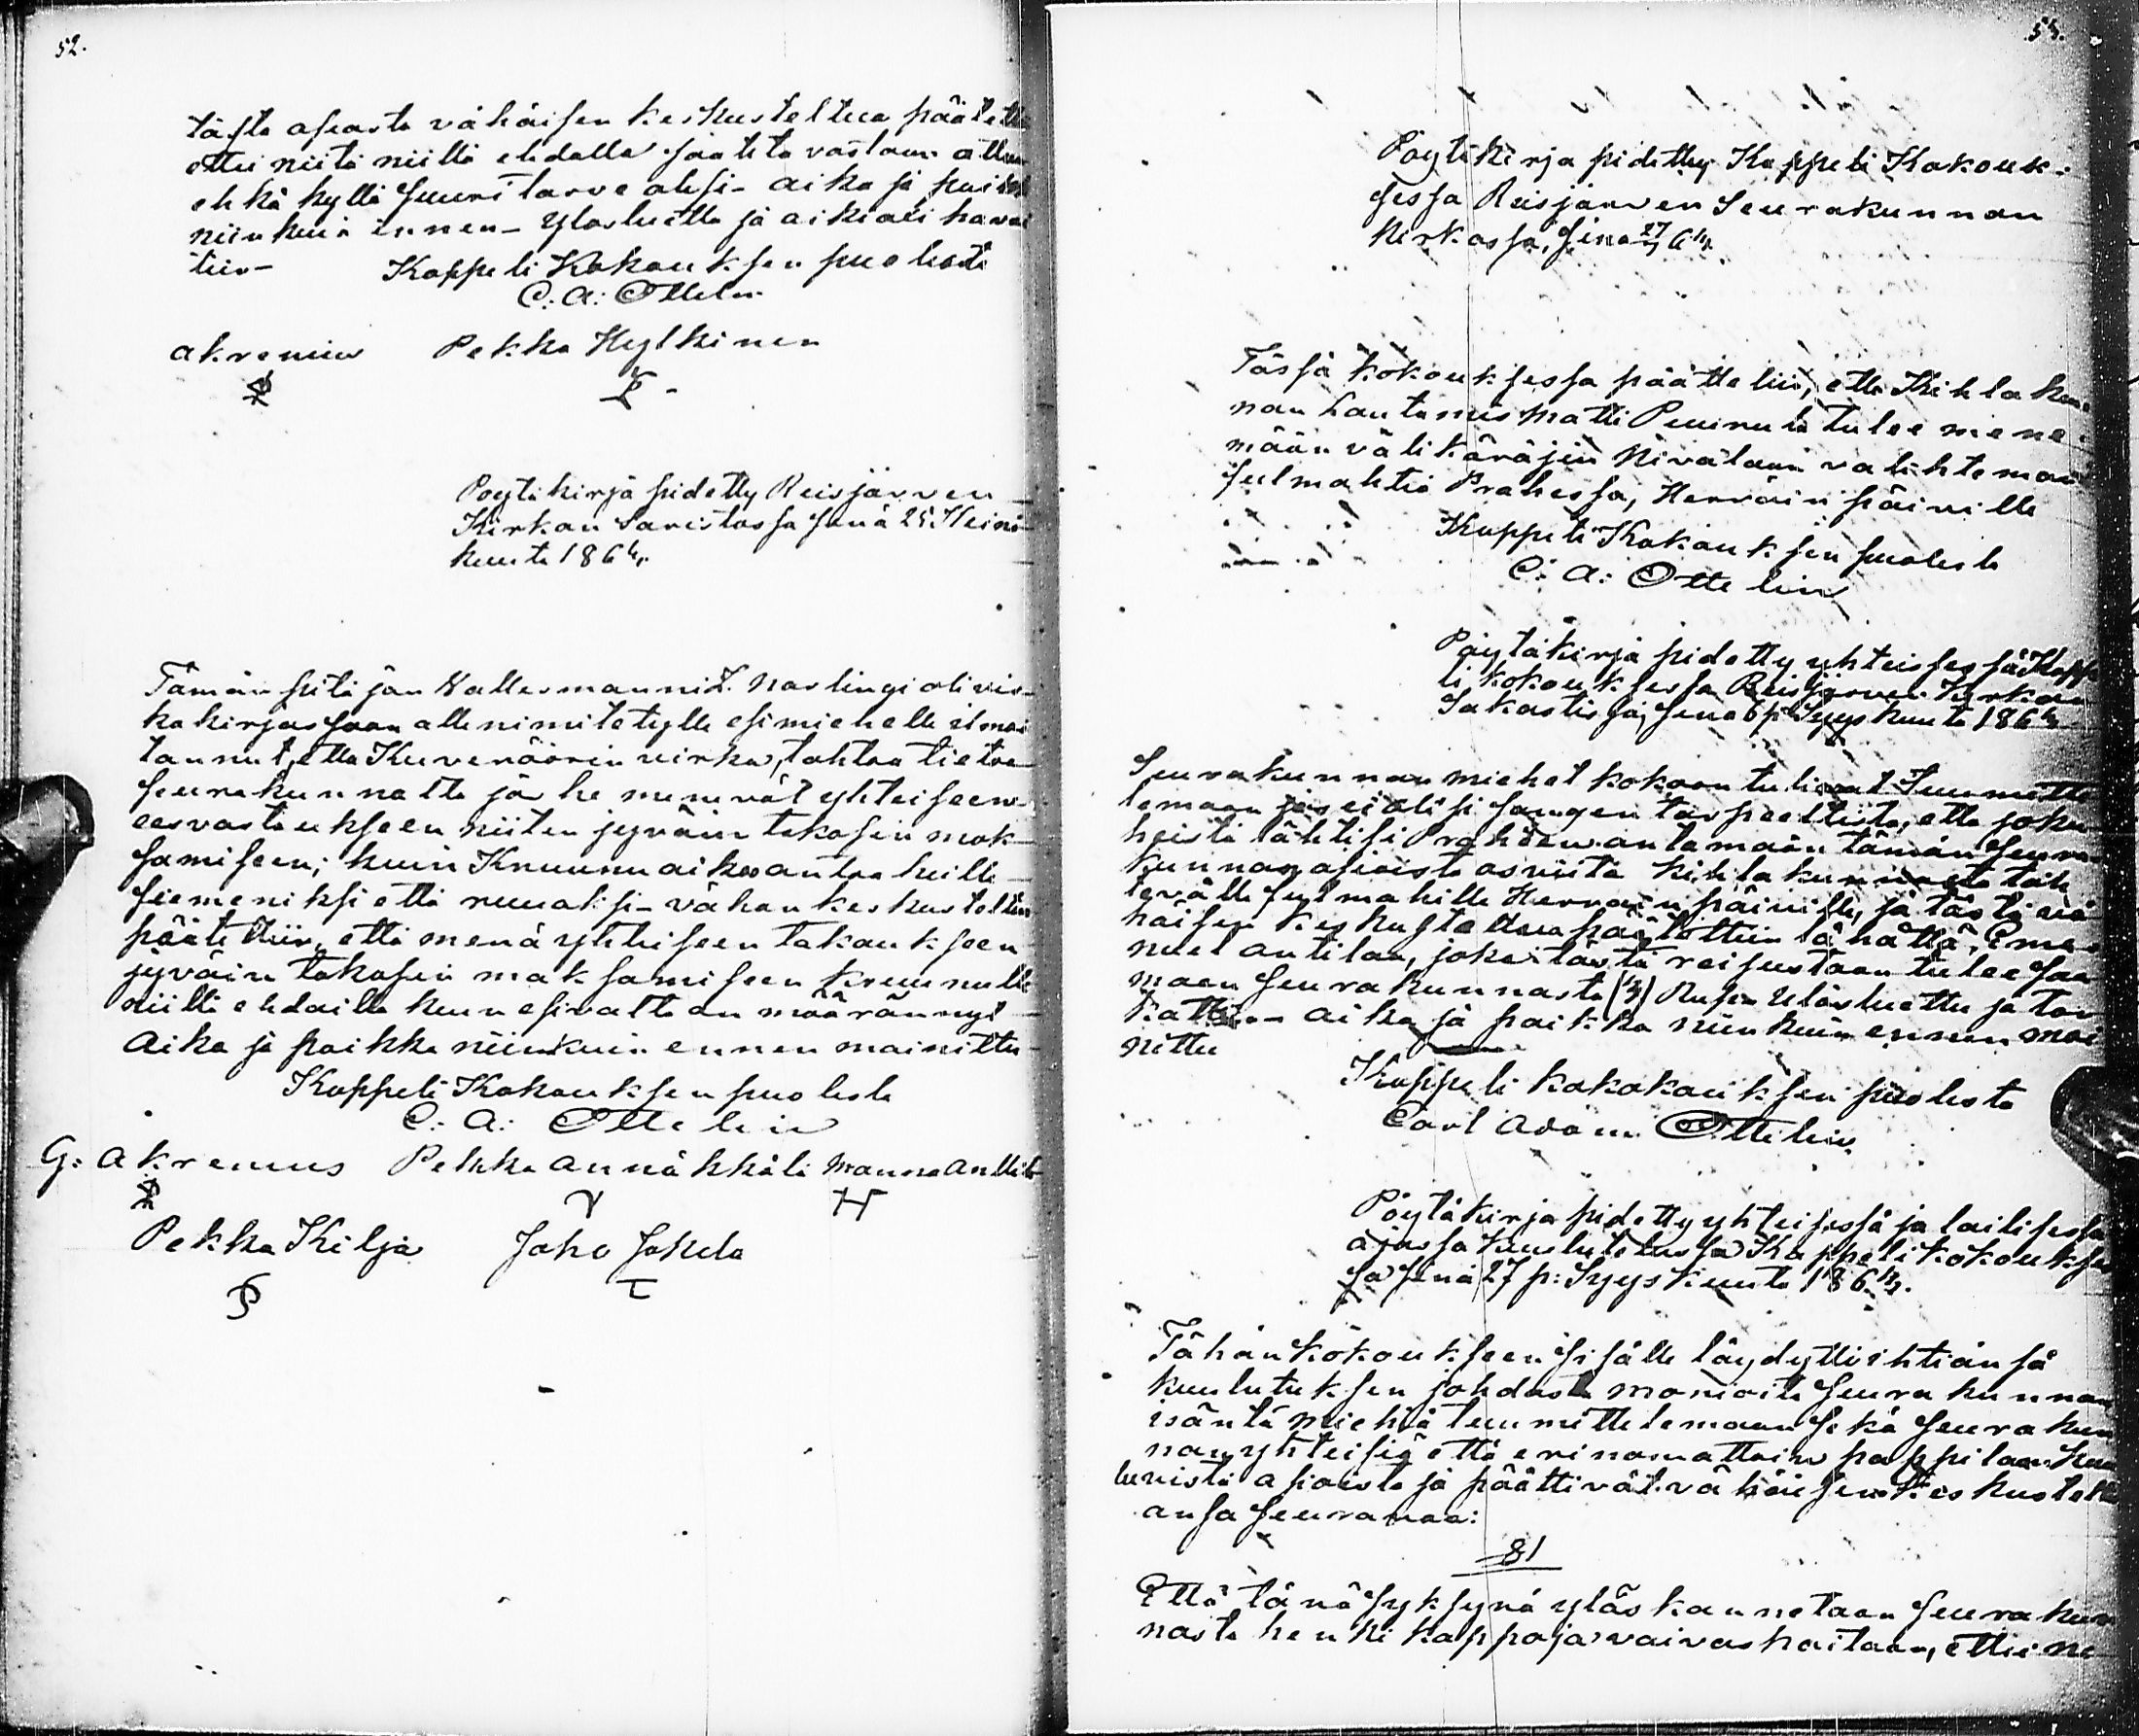 52.
tästa asiasta vähäisen keskusteltua päätett
ettei niitä niillä ehdolla saateta vastaan ottaa
ehkä kyllä suuri tarve olisi - aika ja paikka
niinkuin ennen - Ylösluettu ja oikiaxi havai
tiin -
Kappeli Kokouksen puolesta
C: A: Ottelin
akrenius Pekka Hylkinen
Poytäkirja pidetty Reisjärven
Kirkon Saristossa Sinä 25 Heinä
kuuta 1864.
Tämän pitäjän Vallesmanni Z. Narlingi oli vir-
kakirjassaan allenimitetylle esimiehelle ilmoi
tannut, että Kuvernöörin virka, tahtoo tietoa
seurakunnalta jos he menevät yhteiseen
edesvastaukseen niiten jyväin takasin mak-
samiseen; kuin Kruunu aikoo antaa heille
siemeniksi että ruuaksi - vähan keskusteltua
päätettiin, että menä yhteiseen takaukseen
jyväin takasin maksamiseen kruunulle
niillä ehdoilla kuin esivalta on määrännyt -
Aika ja paikka niinkuin ennen mainittu -
Kappeli Kokouksen puolesta
C: A: Ottelin
G: Akrenius Pekka Annäkkälä Manna Anttila
Pekka Kilja Joho Jokela
53.
Poytäkirja pidetty Kappeli Kokouk-
sessa Reisjärven Seurakunnan
Kirkossa, Sinä 27/7 64.
Tässä kokouksessa päättetiin, että Kihlakun
nan Lautamies Matti Puurula tulee mene-
mään välikäräjiin Nivalaan valihtemaan
fulmahtia Brahessa, Herrain päiville
Kappeli Kokouksen puolesta
C: A: Ottelin
Pöytäkirja pidetty yhteisessä Kappe
li kokouksessa Reisjärven Kirkon
Sakastissa, Sinä 6 p: Syyskuuta 1864
Seurakunnan miehet kokoon tulivat Tuumitte
lemaan jos ei olisi sangen tarpeellista, että joku
heistä lähtisi Braheen antamaan tämän seura
kunnan asioista osviita kihlakunnasta täh
tevälle fulmahille Herrain päiville, ja tästä vä
häisen keskusteltua päätettiin lähättä, Ema
nuel Antilan, joka tästä reisustaan tulee saa
maan seurakunnasta (13) Rupla Ylösluettu ja tar
kattu - aika ja paikka niinkuin ennen mai
nittu
Kappeli kokokouksen puolesta
Carl Adam Ottelin.
Pöytäkirja pidetty yhteisessä ja lailisessa
ajassa kuulutetussa Kappeli kokoukses
sa Sinä 27 p: Syyskuuta 1864.
Tähän kokoukseen sisälle löydytti ihtiänsä
kuulutuksen johdosta monioita seurakunnan
isäntä miehiä tuumittelemaan sekä seurakun
nan yhteisiä että erinomattain pappilaan kuu
luvista asioista ja päättivät vähäisen keskustelt
ansa seuraavaa:
§1
Että tänä syksynä ylöskannetaan seurakun
nasta henki kappoja vaivashoitaan, ettei ne